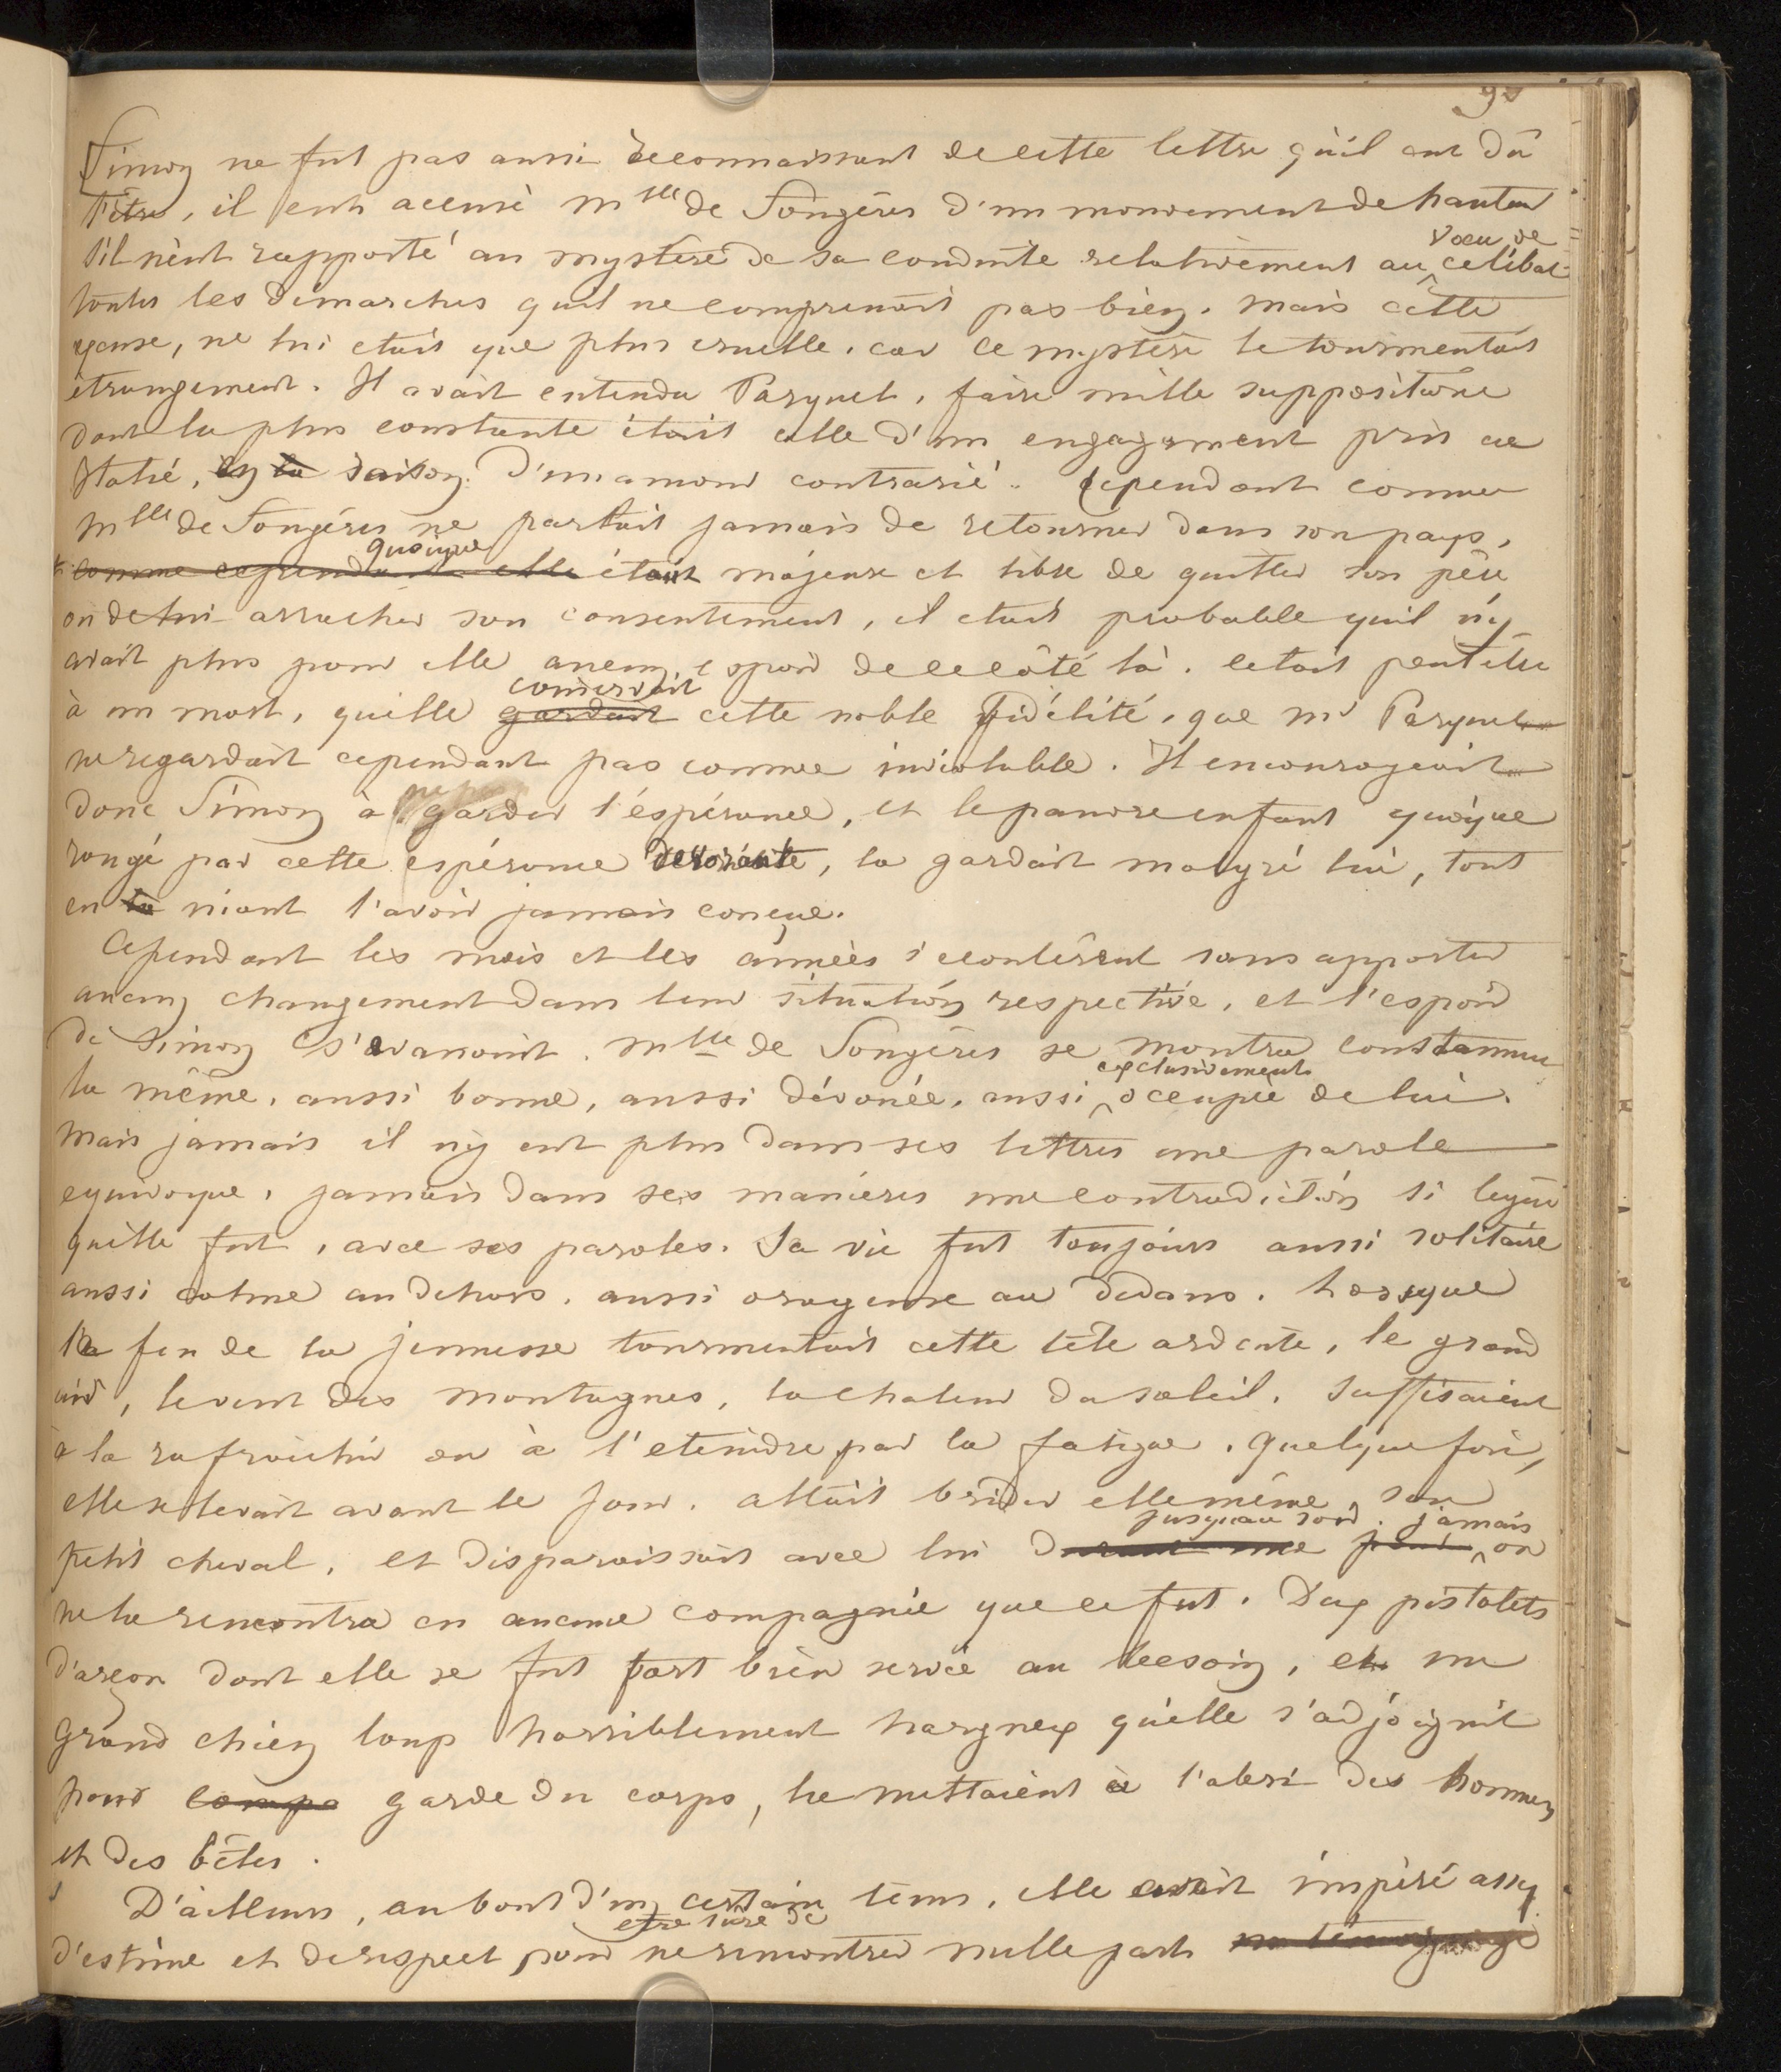 Simon ne fut pas aussi reconnaissant de cette lettre qu'il eut dû
l'être, il eut accusé Mlle de Fongères d'un mouvement de hauteur
s'il n'eut rapporté au mystère de sa conduite relativement au vœu de célibat
toutes les démarches qu'il ne comprenait pas bien. Mais cette
excuse, ne lui etait que plus cruelle, car ce mystère le tourmentait
étrangement. Il avait entendu Parquet, faire mille suppositions
dont la plus constante était celle d'un engagement pris en
Italie, en la raison d'un amour contrarié. Cependant comme
Mlle de Fongères ne parlait jamais de retourner dans son pays,
comme cependant elle quoique était majeure et libre de quitter son père
ou de lui arracher son consentement, il etait probable qu'il n'y
avait plus pour elle aucun espoir de ce côté là. C'etait peut être
à un mort, qu'elle gardait conservait cette noble fidélité, que Mr Parquet
ne regardait cependant pas comme inviolable. Il encourageait
donc Simon à garder l'espérance, et le pauvre enfant quoique
rongé par cette espérance dévorante, la gardait malgré lui, tout
en la niant l'avoir jamais conçue.
Cependant les mois et les années s'écoulèrent sans apporter
aucun changement dans leur situation respective, et l'espoir
de Simon s'évanouit. Mlle de Fongères se montra constamment
la même, aussi bonne, aussi dévouée, aussi exclusivement occupée de lui.
Mais jamais il n'y eut plus dans ses lettres une parole
equivoque, jamais dans ses manières une contradiction si legère
qu'elle fut, avec ses paroles. Sa vie fut toujours aussi solitaire
aussi calme au dehors, aussi orageuse au dedans. Lorsque
le feu de la jeunesse tourmentait cette tête ardente, le grand
air, le vent des montagnes, la chaleur du soleil, suffisaient
à la rafraichir ou à l'eteindre par la fatigue. Quelquefois,
elle se levait avant le jour, allait brider elle même, son
petit cheval, et disparaissait avec lui durant une jusqu'au soir. jamais on
ne la rencontra en aucune compagnie que ce fut. Deux pistolets
d'arçon dont elle se fut fort bien servie au besoin, et un
grand chien loup horriblement hargneux qu'elle s'adjoignit
pour compa garde du corps, la mettaient à l'abri des hommes
et des bêtes.
D'ailleurs, au bout d'un certain tems, elle avait inspiré assez
d'estime et de respect pour être sure de ne rencontrer nulle part un témoignage